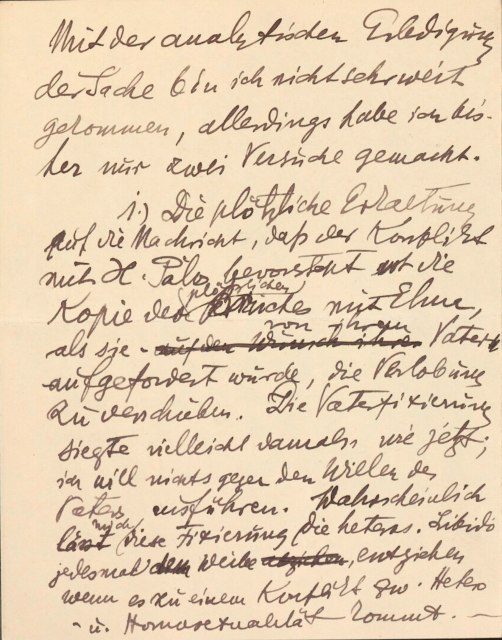 Mit der analytischen Erledigung
der Sache bin ich nicht sehr weit
gekommen, allerdings habe ich bis-
her nur zwei Versuche gemacht.
1.) Die plötzliche Erkaltung
auf die Nachricht, daß der Konflikt
mit H. Pálos bevorsteht ist die
Kopie des plötzlichen Bruches mit Elma,
als sie - auf den Wunsch ihres von ihrem Vater
aufgefordert wurde, die Verlobung
zu verschieben. Die Vaterfixierung
siegte vielleicht damals wie jetzt;
ich will nichts gegen den Willen des
Vaters ausführen. Wahrscheinlich
lässt mich diese Fixierung die heteros. Libido
jedesmal dem Weibe entziehen,
wenn es zu einem Konflikt zw. Hetero
- u. Homosexualität kommt. -